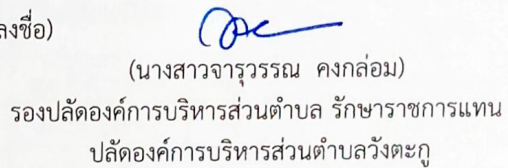 ลงชื่อ)
(นางสาวจารุวรรณ คงกล่อม)
รองปลัดองค์การบริหารส่วนตำบล รักษาราชการแทน
ปลัดองค์การบริหารส่วนตำบลวังตะกู